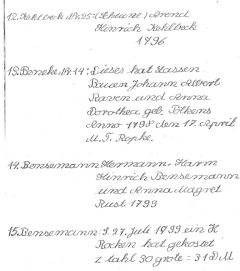 12. Kehlbeck Nr. 25: (Scheune) Arend
Hinrich Kehlbeck
1796
13. Beneke Nr. 14: Dieses hat Lassen
Bauen Johann Albert
Raven und Anna
Dorothea geb. Tölkens
Anno 1798 den 17. April
M. T. Ropke.
14. Bensemann Hermann-Harm
Hinrich Bensemann
und Anna Magret
Rust 1799
15. Bensemann: d. 27. Juli 1799 ein H
Rocken hat gekostet
2 tahl 30 grote = 31 DM